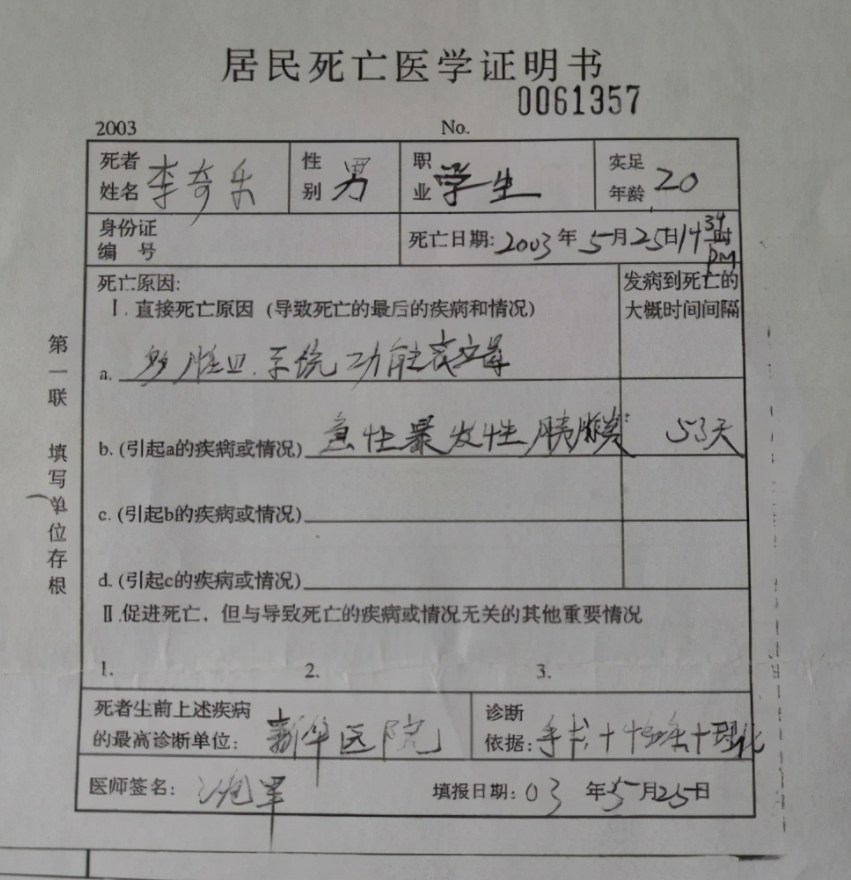 居民死亡医学证明书
0061357
2003 No.
死者姓名 李奇乐 性别 男 职业 学生 实足年龄 20
身份证编号 死亡日期: 2003年5月25日14时34 PM
死亡原因: 发病到死亡的大概时间间隔
Ⅰ.直接死亡原因 (导致死亡的最后的疾病和情况)
a. 多脏器系统功能衰竭
b. (引起a的疾病或情况) 急性暴发性胰腺炎 53天
c. (引起b的疾病或情况)
d. (引起c的疾病或情况)
Ⅱ.促进死亡，但与导致死亡的疾病或情况无关的其他重要情况
1. 2. 3.
死者生前上述疾病的最高诊断单位: 新华医院 诊断依据: 手术+
医师签名: 填报日期: 03年5月25日
第一联 填写单位存根